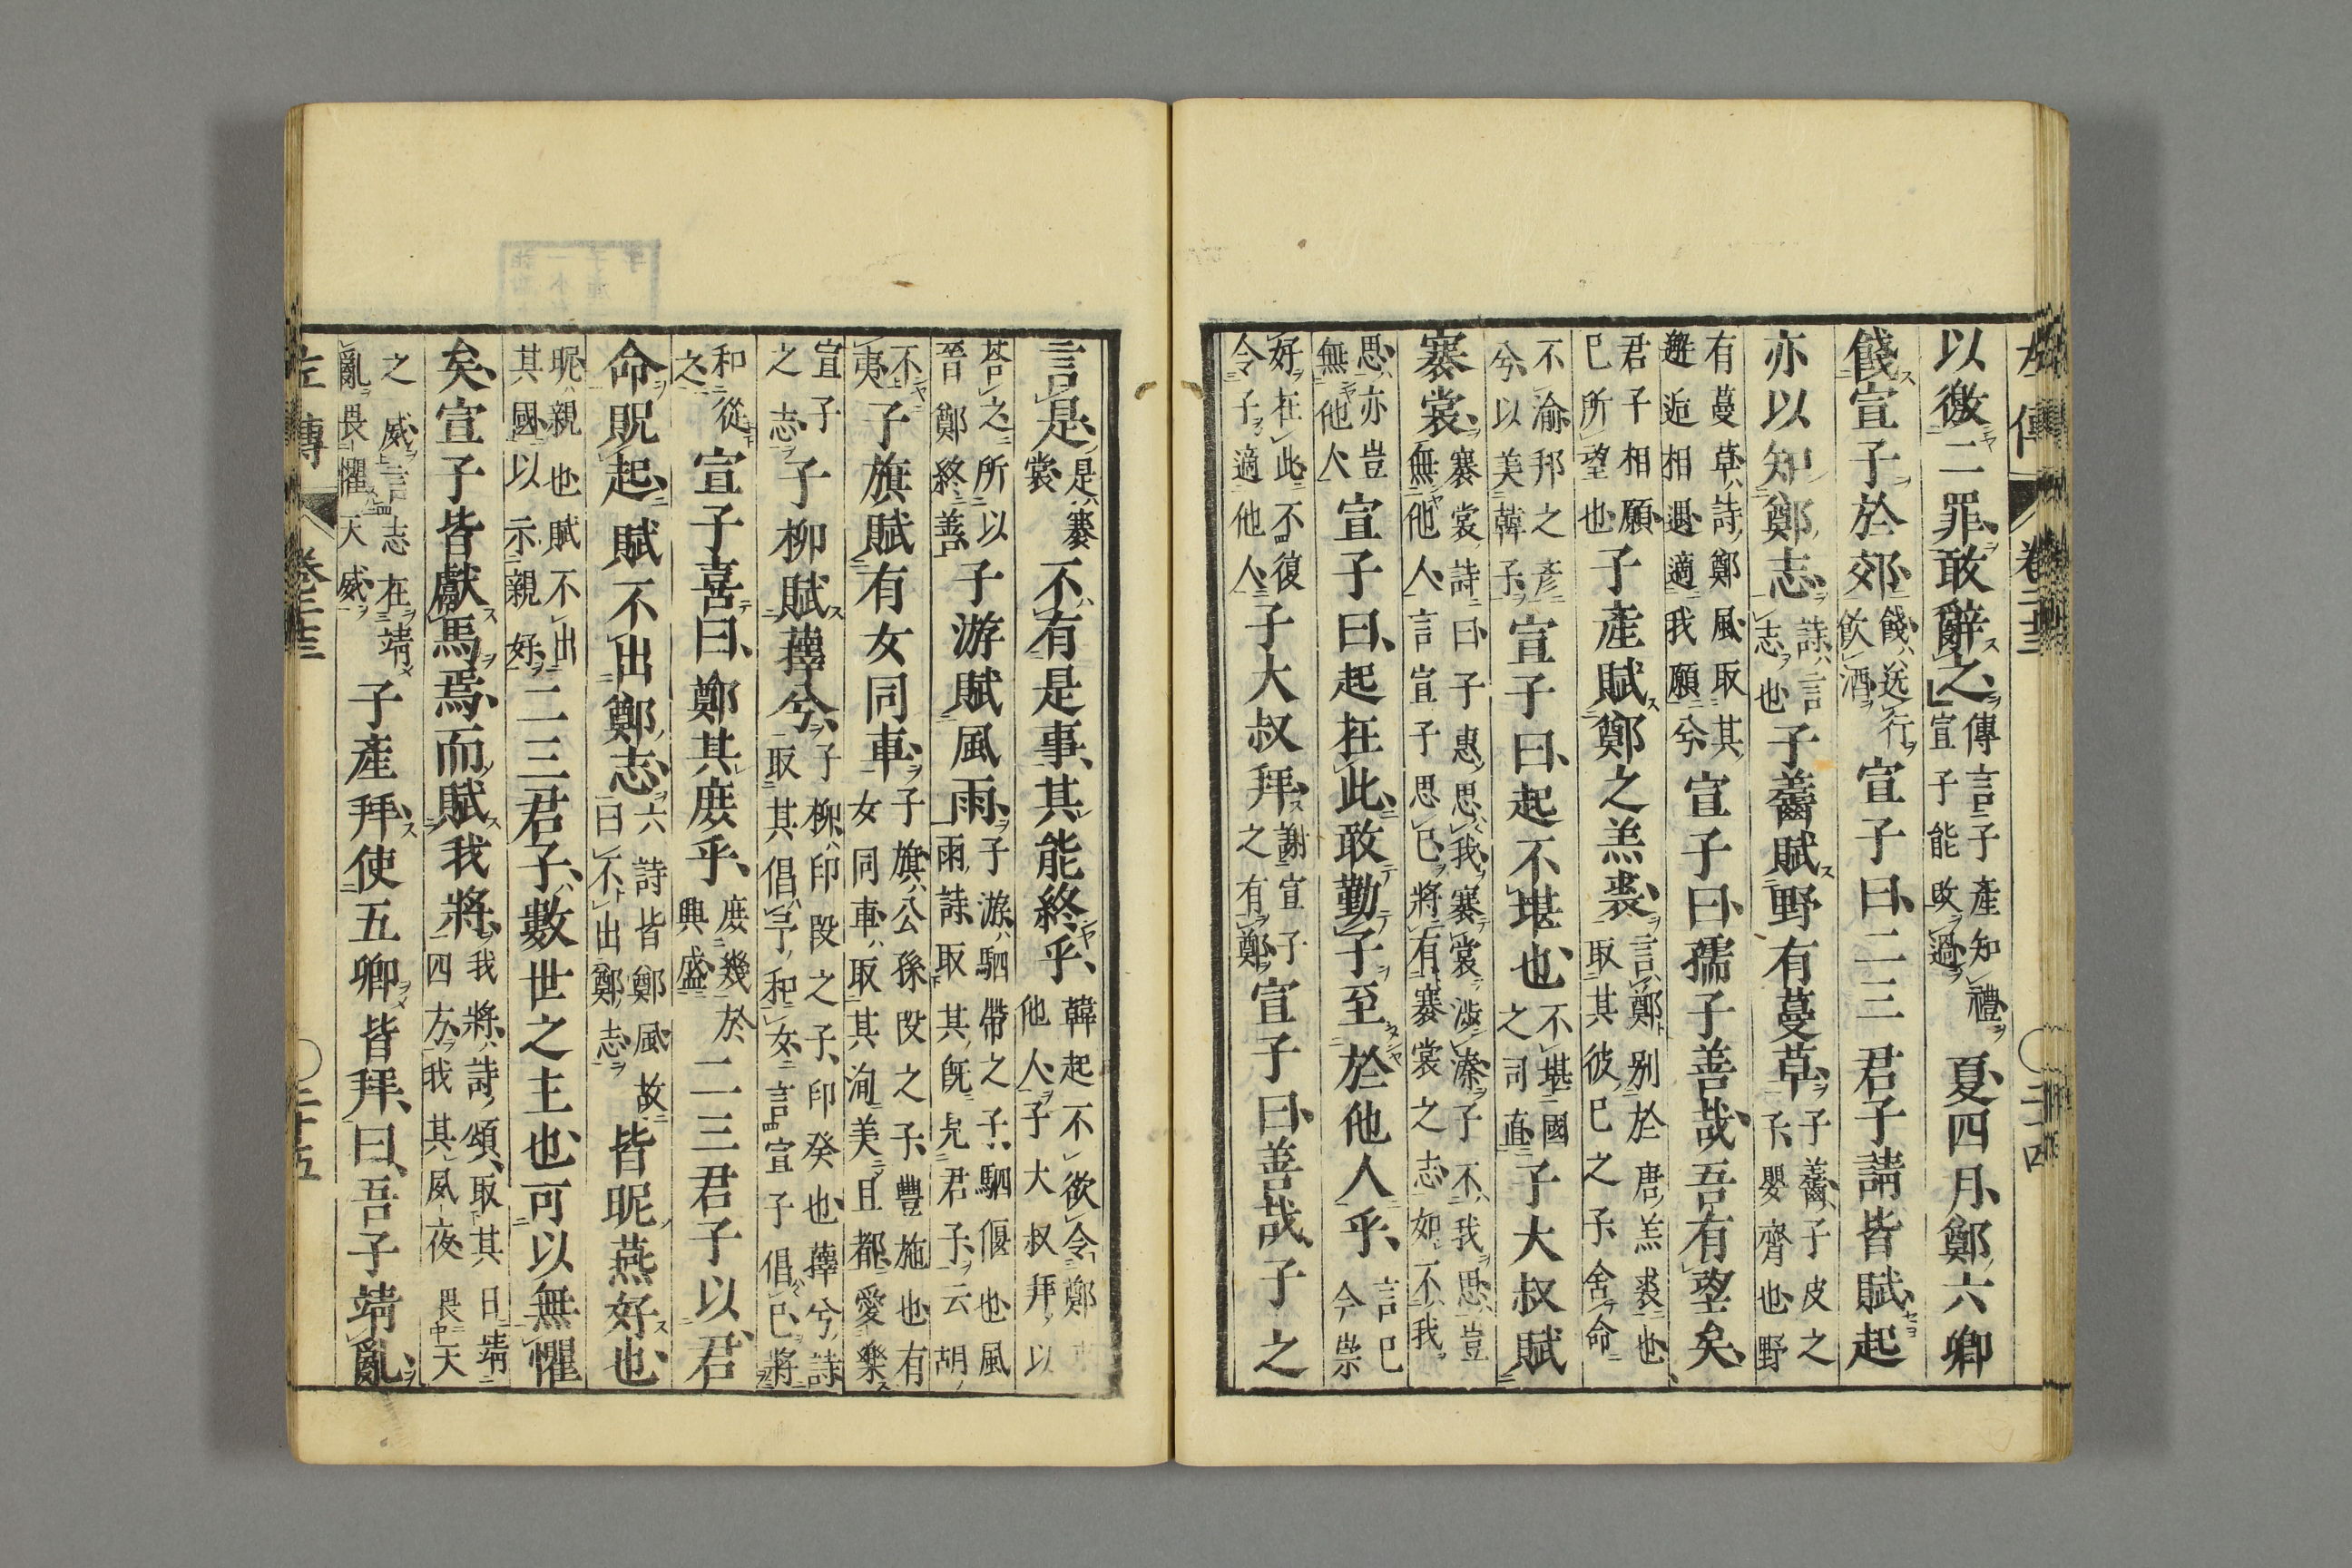 以徼二罪、敢辭之、傳言子產知禮宣子能改過夏、四月、鄭六卿
餞宣子於郊、餞送行飲酒宣子曰、二三君子請皆賦、起
亦以知鄭志、詩言志也子齹賦野有蔓草、子齹、子皮之子、嬰齊也、野
有蔓草、詩鄭風、取其邂逅相遇、適我願兮、宣子曰、孺子善哉、吾有望矣、
君子相願、己所望也、子產賦鄭之羔裘、言鄭別於唐羔裘也、取其彼己之子、舍命
不渝、邦之彥兮、以美韓子、宣子曰、起不堪也、不堪國之司直、子大叔賦
褰裳、褰裳、詩曰子惠思我、褰裳涉溱、子不我思、豈無他人、言宣子思己、將有褰裳之志、如不我
思、亦豈無他人宣子曰、起在此、敢勤子至於他人乎、言己今崇
好在此、不復令子適他人、子大叔拜、謝宣子之有鄭宣子曰、善哉、子之
言是、是、褰裳不有是事、其能終乎、韓起不欲令鄭他人、子大叔拜、以
荅之、所以晉鄭終善子游賦風雨、子游、駟帶之子、駟偃也、風雨、詩取其既見君子、云胡
不夷、子旗賦有女同車、子旗、公孫段之子、豐施也、有女同車、取其洵美且都、愛樂
宣子之志子柳賦蘀兮、子柳、印段之子、印癸也、蘀兮、詩取其倡予和女、言宣子倡己將
和從之宣子喜曰、鄭其庶乎、庶幾於興盛二三君子以君
命貺起、賦不出鄭志、六詩皆鄭風、故曰不出鄭志皆昵燕好也、
昵、親也、賦不出其國、以示親好、二三君子、數世之主也、可以無懼
矣、宣子皆獻馬焉、而賦我將、我將、詩頌、取其日靖四方、我其夙夜畏天
之威、言志在靖亂、畏懼天威子產拜、使五卿皆拜、曰、吾子靖亂、
左傳